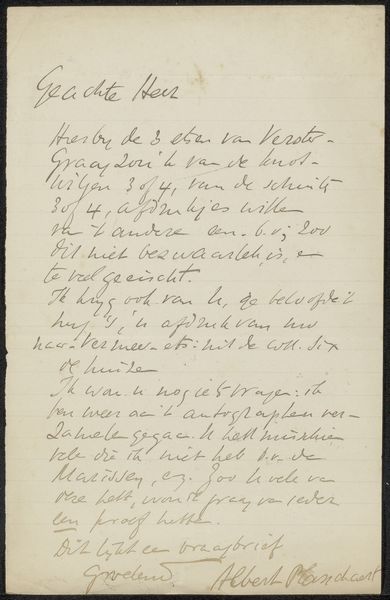 Geachte Heer
Hierbij de 3 etsen van Verster.
Graag zou ik van de knot-
wilgen 3 of 4, van de schuit
3 of 4, afdrukjes willen
van 't andere een. b.v; zoo
dit niet bezwaarlijk is, en
te veel geëischt.
Ik krijg ook van U, ge beloofde 't
mij, 'n afdruk van uw
naar Vermeer-ets: uit de coll. Six
de huizen
Ik wou u nog iets vragen: ik
ben weer aan 't autographen ver-
zamelen gegaan. U hebt misschien
vele die ik niet heb b.v. de
Marissen, enz. Zoo U vele van
deze hebt, wou ik graag van ieder
een proef hebben.
Dit lijkt een vraagbrief
Groetend Albert Plasschaert